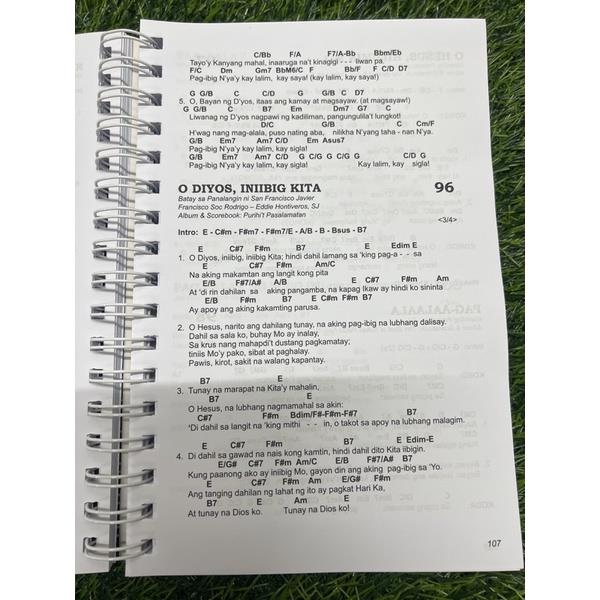 C/Bb F/A F7/A-Bb Bbm/Eb
Tayo'y Kanyang mahal, inaaruga na't kinagigi - - - liwan pa.
F/C Dm Gm7 BbM6/C F Bb/F F C/D D7
Pag-ibig N'ya'y kay lalim, kay saya! (kay lalim, kay saya!)
G G/B C C/D G G/B C D7
5. O, Bayan ng D'yos, itaas ang kamay at magsayaw. (at magsayaw!)
G G/B C B7 Em Dm7 G7 C
Liwanag ng D'yos nagpawi ng kadiliman, pangungulila't lungkot!
D/C G/B C Cm/F
H'wag nang mag-alala, puso nating aba, nilikha N'yang taha - nan N'ya.
G/B Em7 Am7 C/D Em Asus7
Pag-ibig N'ya'y kay lalim, kay sigla!
G/B Em7 Am7 C/D G C/G G C/G G C/D G
Pag-ibig N'ya'y kay lalim, kay sigla! Kay lalim, kay sigla!
O DIYOS, INIIBIG KITA 96
Batay sa Panalangin ni San Francisco Javier
Francisco Soc Rodrigo – Eddie Hontiveros, SJ
Album & Scorebook: Purihi't Pasalamatan <3/4>
Intro: E - C#m - F#m7 - F#m7/E - A/B - B - Bsus - B7
E C#7 F#m B7 E Edim E
1. O Diyos, iniibig, iniibig Kita; hindi dahil lamang sa 'king pag-a - - sa
E C#7 F#m Am/C
Na aking makamtan ang langit kong pita
E/B F#7/A# A/B E C#7 F#m Am
At 'di rin dahilan sa aking pangamba, na kapag Ikaw ay hindi ko sininta
E/B F#m B7 E C#m F#m B7
Ay apoy ang aking kakamting parusa.
2. O Hesus, narito ang dahilang tunay, na aking pag-ibig na lubhang dalisay.
Dahil sa sala ko, buhay Mo ay inalay,
Sa krus nang mahapdi't dustang pagkamatay;
tiniis Mo'y pako, sibat at paghalay.
Pawis, kirot, sakit na walang kapantay.
B7 E
3. Tunay na marapat na Kita'y mahalin,
B7 E
O Hesus, na lubhang nagmamahal sa akin:
C#7 F#m Bdim/F#-F#m-F#7 B7
'Di dahil sa langit na 'king mithi - - in, o takot sa apoy na lubhang malagim.
E C#7 F#m B7 E Edim-E
4. Di dahil sa gawad na nais kong kamtin, hindi dahil dito Kita iibigin.
E/G# C#7 F#m Am/C E/B F#7/A# B7
Kung paanong ako ay iniibig Mo, gayon din ang aking pag-ibig sa 'Yo.
E C#7 F#m Am E/G# F#m
Ang tanging dahilan ng lahat ng ito ay pagkat Hari Ka,
B7 E Am E
At tunay na Dios ko. Tunay na Dios ko!
107